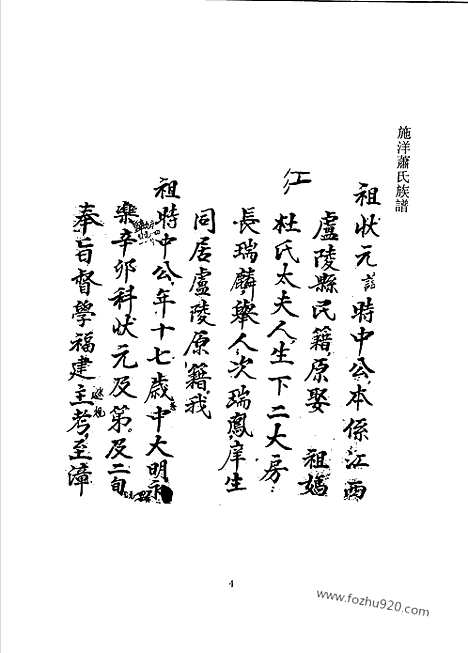 施洋蕭氏族譜
祖狀元諱時中公,本係江西
盧陵縣民籍,原娶 祖媽
江
杜氏太夫人,生下二大房:
長瑞麟,舉人,次瑞鳳,庠生
同居盧陵原籍,我
祖時中公,年十七歲,中大明永
樂辛卯科狀元及第,及二旬
奉旨督學福建主考,至漳
4
www.fozhu920.com